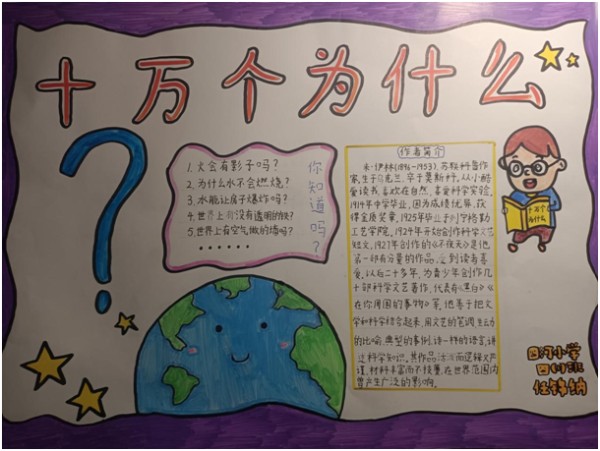 十万个为什么
你知道吗?
1.火会有影子吗?
2.为什么水不会燃烧?
3.水能让房子爆炸吗?
4.世界上有没有透明的铁?
5.世界上有空气做的墙吗?
······
作者简介
米·伊林(1896-1953),苏联科普作
家,生于乌克兰,卒于莫斯科。从小酷
爱读书,喜欢在自然,喜爱科学实验,
1914年中学毕业,因为成绩优异,获
得金质奖章,1925年毕业于列宁格勒
工艺学院,1924年开始创作科学文艺
短文,1927年创作的《不夜天》是他
第一部有分量的作品,受到读者喜
爱,以后二十多年,为青少年创作几
十部科学文艺著作,代表有《黑白》《
在你周围的事物》等,他善于把文
学和科学结合起来,用文艺的笔调,生动
的比喻,典型的事例,诗一样的语言,讲
述科学知识。其作品活泼而逻辑又严
谨,材料丰富而不枝蔓,在世界范围内
曾产生广泛的影响。
十万个
为什么
四河小学
任锦纳